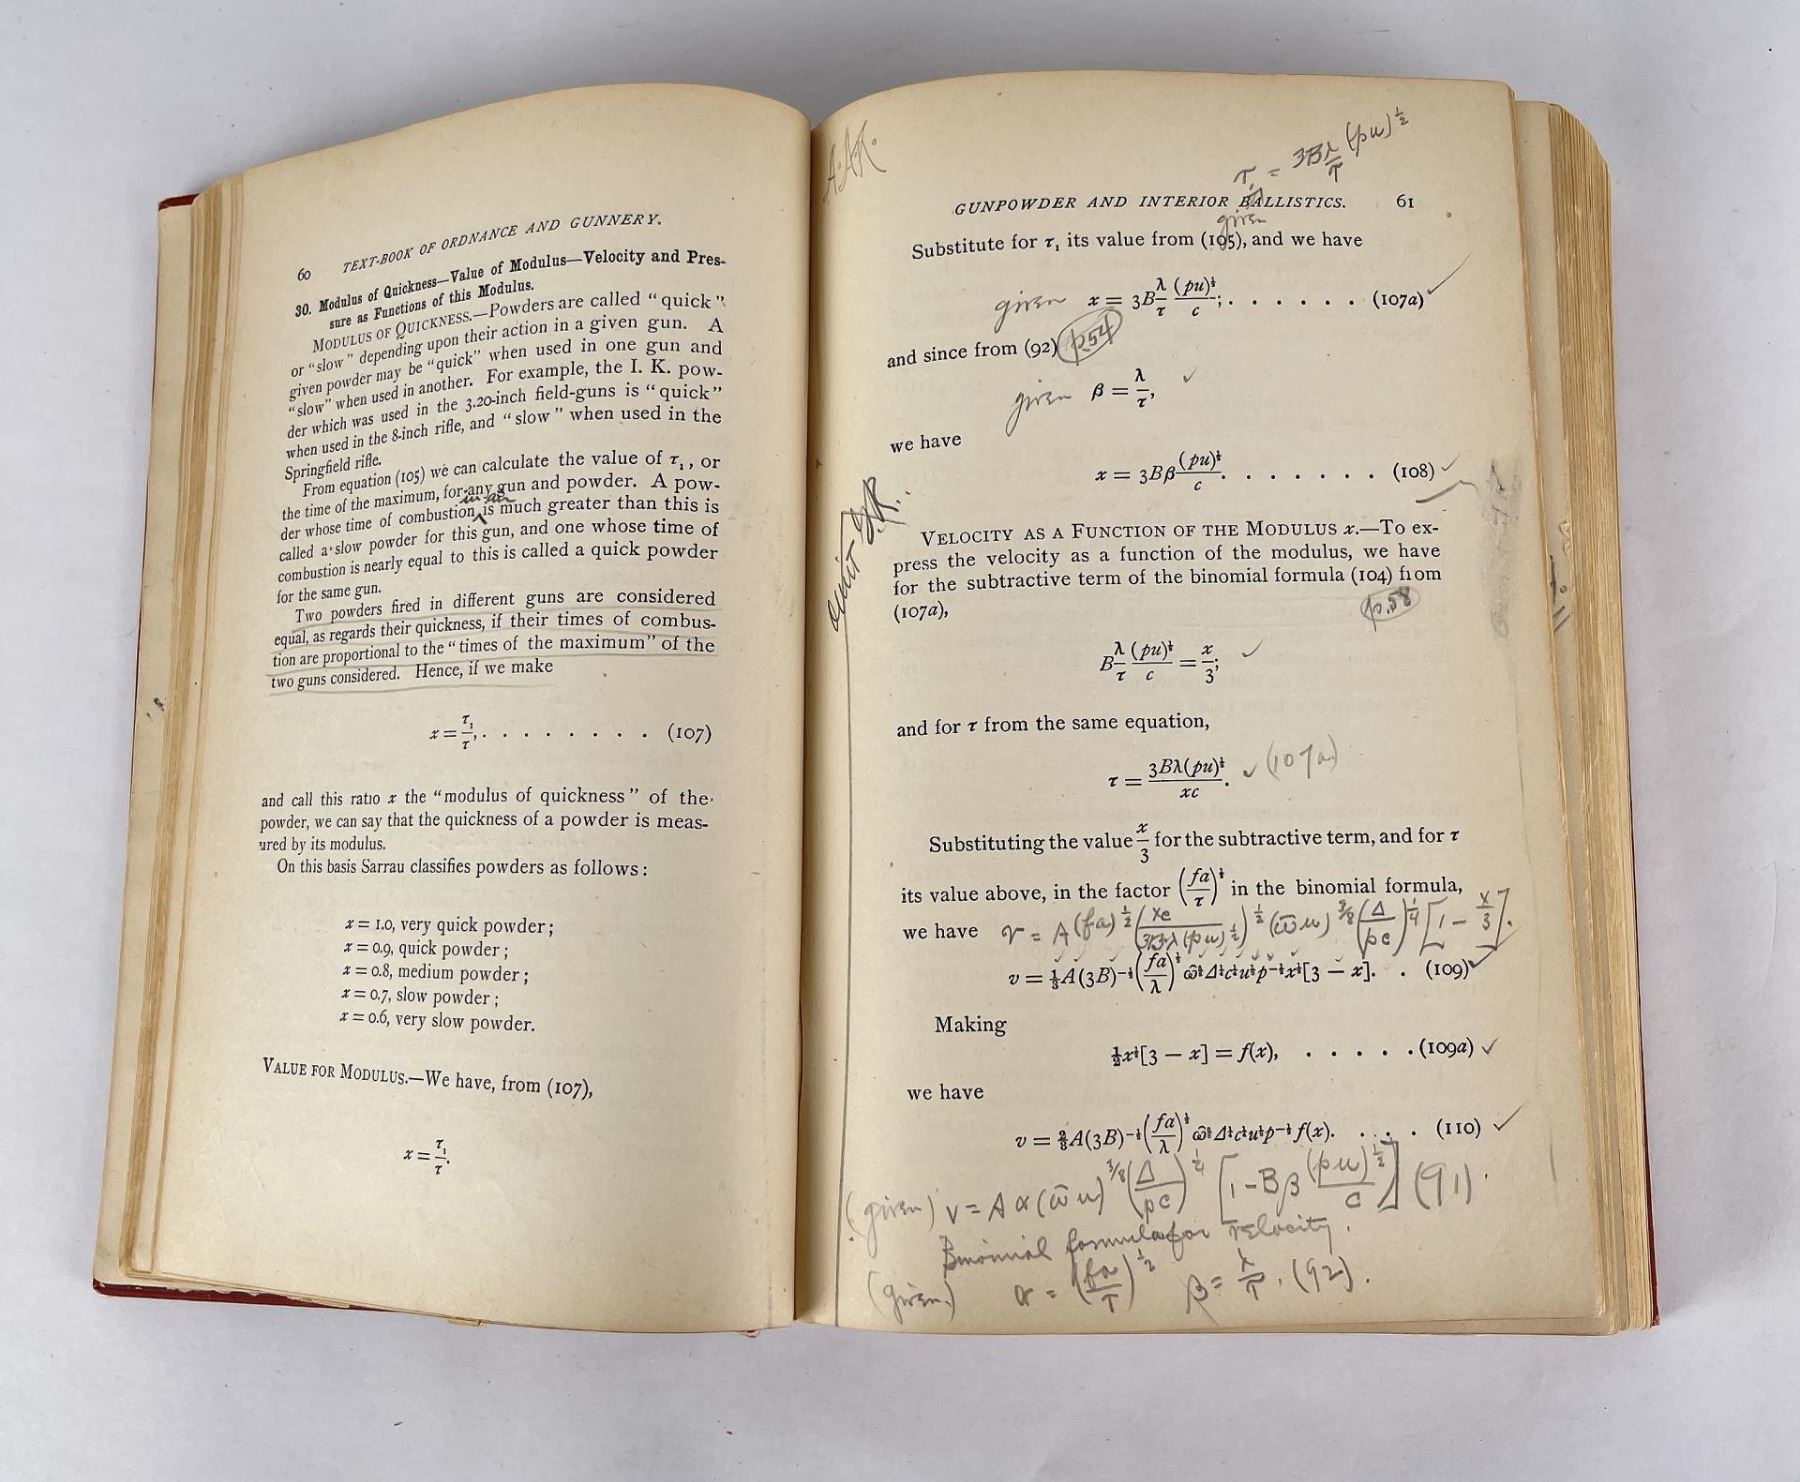 60 TEXT-BOOK OF ORDNANCE AND GUNNERY.
30. Modulus of Quickness—Value of Modulus—Velocity and Pres-
sure as Functions of this Modulus.
MODULUS OF QUICKNESS.—Powders are called “quick”
or “slow” depending upon their action in a given gun. A
given powder may be “quick” when used in one gun and
“slow” when used in another. For example, the I. K. pow-
der which was used in the 3.20-inch field-guns is “quick”
when used in the 8-inch rifle, and “slow” when used in the
Springfield rifle.
From equation (105) we can calculate the value of τ₁, or
the time of the maximum, for any gun and powder. A pow-
in air
der whose time of combustion is much greater than this is
called a slow powder for this gun, and one whose time of
combustion is nearly equal to this is called a quick powder
for the same gun.
Two powders fired in different guns are considered
equal, as regards their quickness, if their times of combus-
tion are proportional to the “times of the maximum” of the
two guns considered. Hence, if we make
x = τ₁/τ, . . . . . . . . (107)
and call this ratio x the “modulus of quickness” of the
powder, we can say that the quickness of a powder is meas-
ured by its modulus.
On this basis Sarrau classifies powders as follows:
x = 1.0, very quick powder;
x = 0.9, quick powder;
x = 0.8, medium powder;
x = 0.7, slow powder;
x = 0.6, very slow powder.
VALUE FOR MODULUS.—We have, from (107),
x = τ₁/τ.
A.A.R.
τ₁ = 3B λ/τ (pu)^½
GUNPOWDER AND INTERIOR BALLISTICS. 61
given
Substitute for τ₁ its value from (105), and we have
given x = 3B λ/τ (pu)^½/c; . . . . . . (107a) ✓
and since from (92) p54
given β = λ/τ, ✓
we have
x = 3Bβ (pu)^½/c. . . . . . . . (108) ✓
omit
VELOCITY AS A FUNCTION OF THE MODULUS x.—To ex-
press the velocity as a function of the modulus, we have
for the subtractive term of the binomial formula (104) from
(107a), p.58
B λ/τ (pu)^½/c = x/3; ✓
and for τ from the same equation,
τ = 3Bλ(pu)^½/xc. ✓ (107a)
Substituting the value x/3 for the subtractive term, and for τ
its value above, in the factor (fa/τ)^½ in the binomial formula,
we have v = A(fa)^½ (xc/3Bλ(pu)^½)^½ (ω̄u)^3/8 (Δ/pc)^¼ [1 − x/3].
v = ⅓A(3B)^−½ (fa/λ)^½ ω̄^⅜ Δ^¼ c^¼ u^⅛ p^−½ x^½ [3 − x]. . (109) ✓
Making
½x^½[3 − x] = f(x), . . . . . (109a) ✓
we have
v = ⅔A(3B)^−½ (fa/λ)^½ ω̄^⅜ Δ^¼ c^¼ u^⅛ p^−½ f(x). . . . . (110) ✓
(given) v = Aα(ω̄u)^3/8 (Δ/pc)^¼ [1 − Bβ (pu)^½/c] (91).
Binomial formula for velocity.
(given) α = (fa/τ)^½ β = λ/τ. (92).